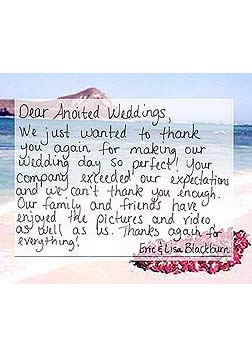 Dear Anoited Weddings,
We just wanted to thank
you again for making our
wedding day so perfect! Your
company exceeded our expectations
and we can't thank you enough.
Our family and friends have
enjoyed the pictures and video,
as well as us. Thanks again for
everything!
Eric & Lisa Blackburn